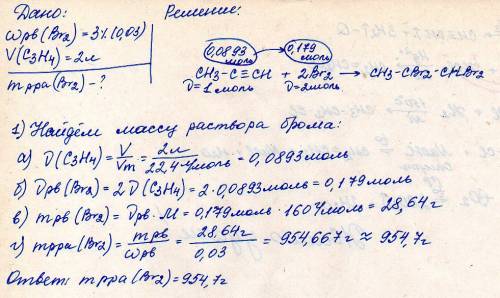 Дано:
ωрв(Br₂)=3%(0,03)
V(C₃H₄)=2л
mрра(Br₂)-?
Решение:
0,0893 моль 0,179 моль
CH₃-C≡CH + 2Br₂ → CH₃-CBr₂-CHBr₂
υ=1моль υ=2моль
1) Найдём массу раствора брома:
а) υ(C₃H₄)=V/Vm=2л/22,4 л/моль=0,0893моль
б) υрв(Br₂)=2υ(C₃H₄)=2·0,0893моль=0,179моль
в) mрв(Br₂)=υрв·M=0,179моль·160г/моль=28,64г
г) mрра(Br₂)=mрв/ωрв=28,64г/0,03=954,667г≈954,7г
Ответ: mрра(Br₂)=954,7г